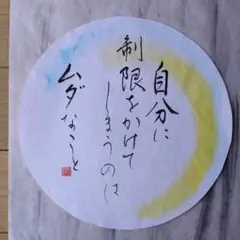 自分に
制限をかけて
しまうのは
ムダなこと